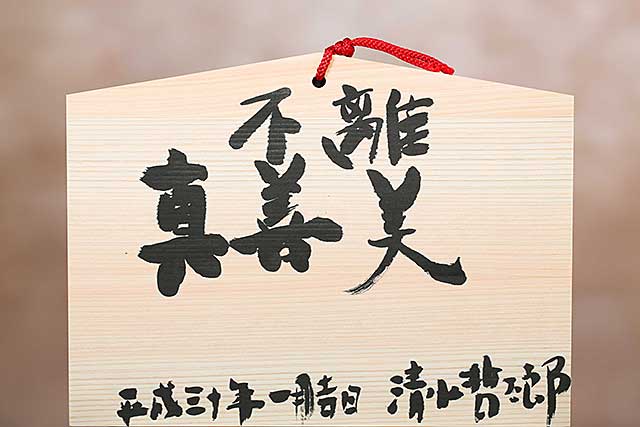 不離
真善美
平成三十年一月吉日 清水哲太郎